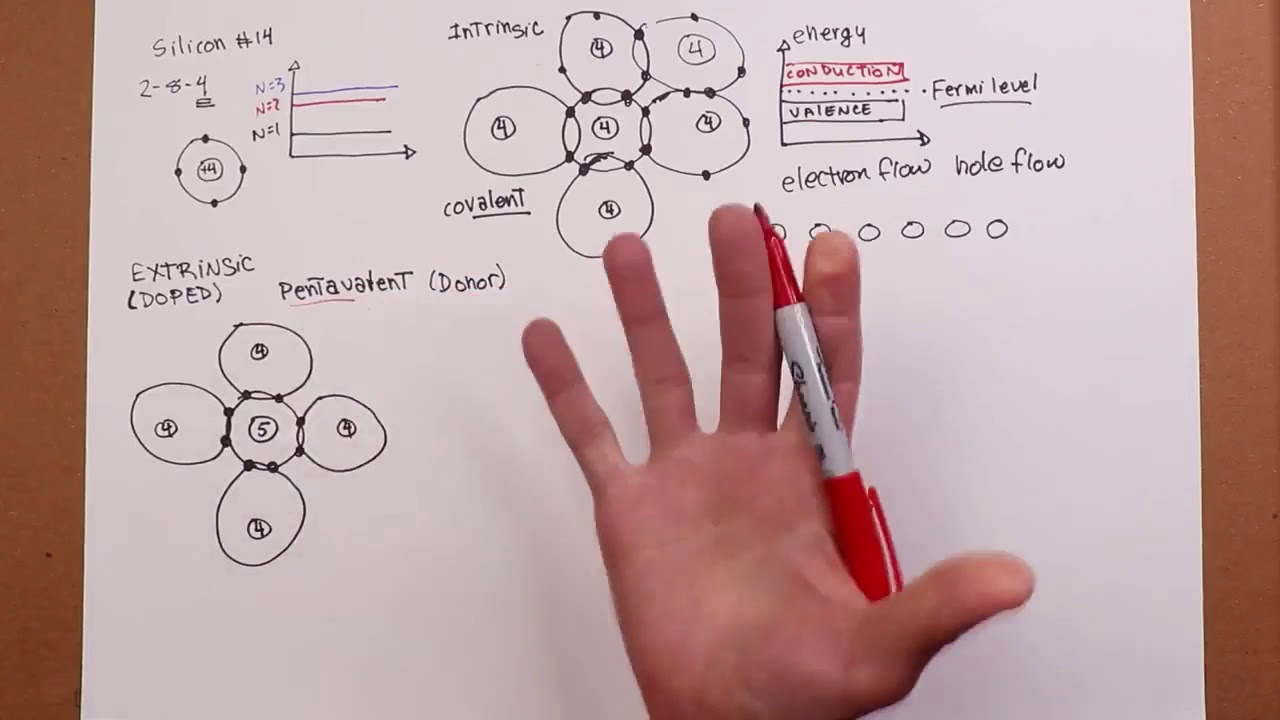 Silicon #14
2-8-4
N=3
N=2
N=1
+4
Intrinsic
4
4
4
4
4
4
covalent
energy
CONDUCTION
Fermi level
VALENCE
electron flow hole flow
EXTRINSIC
(DOPED)
Pentavalent (Donor)
4
4
5
4
4